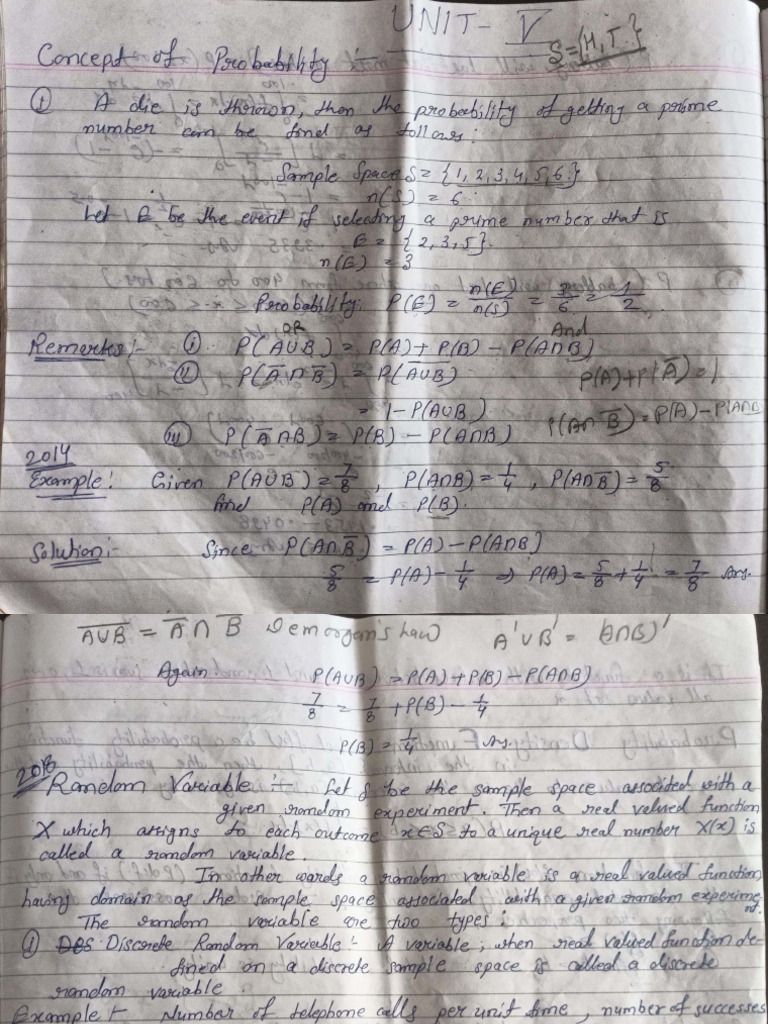 UNIT - V
S = {H, T.}
Concept of Probability :-
① A die is thrown, then the probability of getting a prime
number can be find as follows:
Sample Space S = {1, 2, 3, 4, 5, 6}
n(S) = 6
Let E be the event if selecting a prime number that is
E = {2, 3, 5}.
n(E) = 3
Probability: P(E) = n(E)/n(S) = 3/6 = 1/2.
OR And
Remarks:- ⓘ P(A∪B) = P(A) + P(B) - P(A∩B)
ⓘⓘ P(A̅∩B̅) = P(A∪B) P(A) + P(A̅) = 1
= 1 - P(A∪B) P(A∩B̅) = P(A) - P(A∩B
ⓘⓘⓘ P(A̅∩B) = P(B) - P(A∩B)
2014
Example: Given P(A∪B) = 7/8, P(A∩B) = 1/4, P(A∩B̅) = 5/8.
find P(A) and P(B).
Solution:- Since P(A∩B̅) = P(A) - P(A∩B)
5/8 = P(A) - 1/4 ⇒ P(A) = 5/8 + 1/4 = 7/8 Ans.
A̅∪̅B̅ = A̅ ∩ B̅ Demorgan's Law) A'∪B' = (A∩B)'
Again P(A∪B) = P(A) + P(B) - P(A∩B)
7/8 = 7/8 + P(B) - 1/4
P(B) = 1/4 Ans.
2018
Random Variable :- Let S be the sample space associated with a
given random experiment. Then a real valued function
X which assigns to each outcome x∈S to a unique real number X(x) is
called a random variable.
In other wards a random variable is a real valued function
having domain as the sample space associated with a given random experiment.
The random variable are two types:
ⓘ Discrete Random Variable :- A variable, when real valued function de-
fined on a discrete sample space is called a discrete
random variable.
Example :- Number of telephone calls per unit time, number of successes